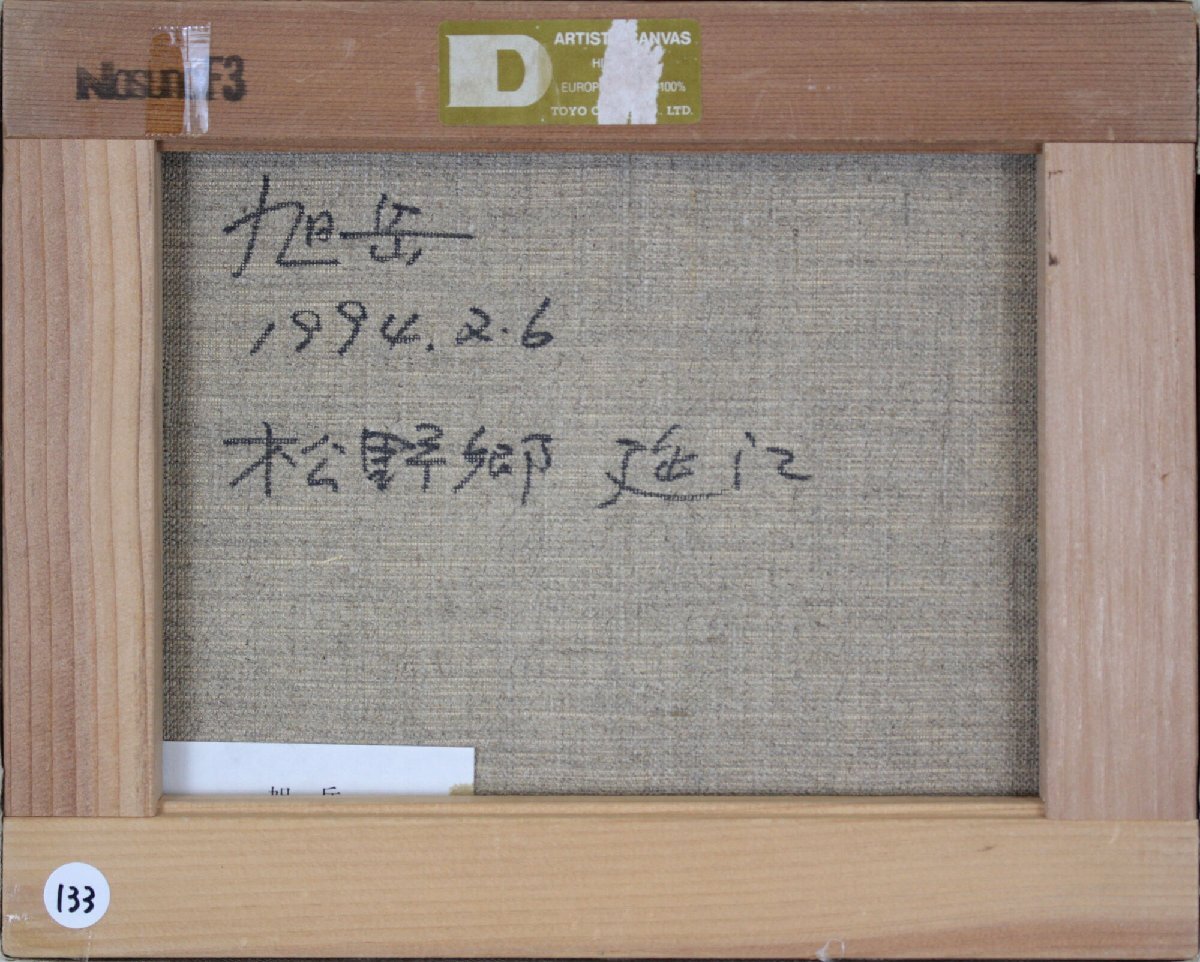 Nasuno F3
D
ARTIST CANVAS
EUROP 100%
TOYO C . LTD.
旭岳
1994.2.6
松野郷 延江
旭 岳
133